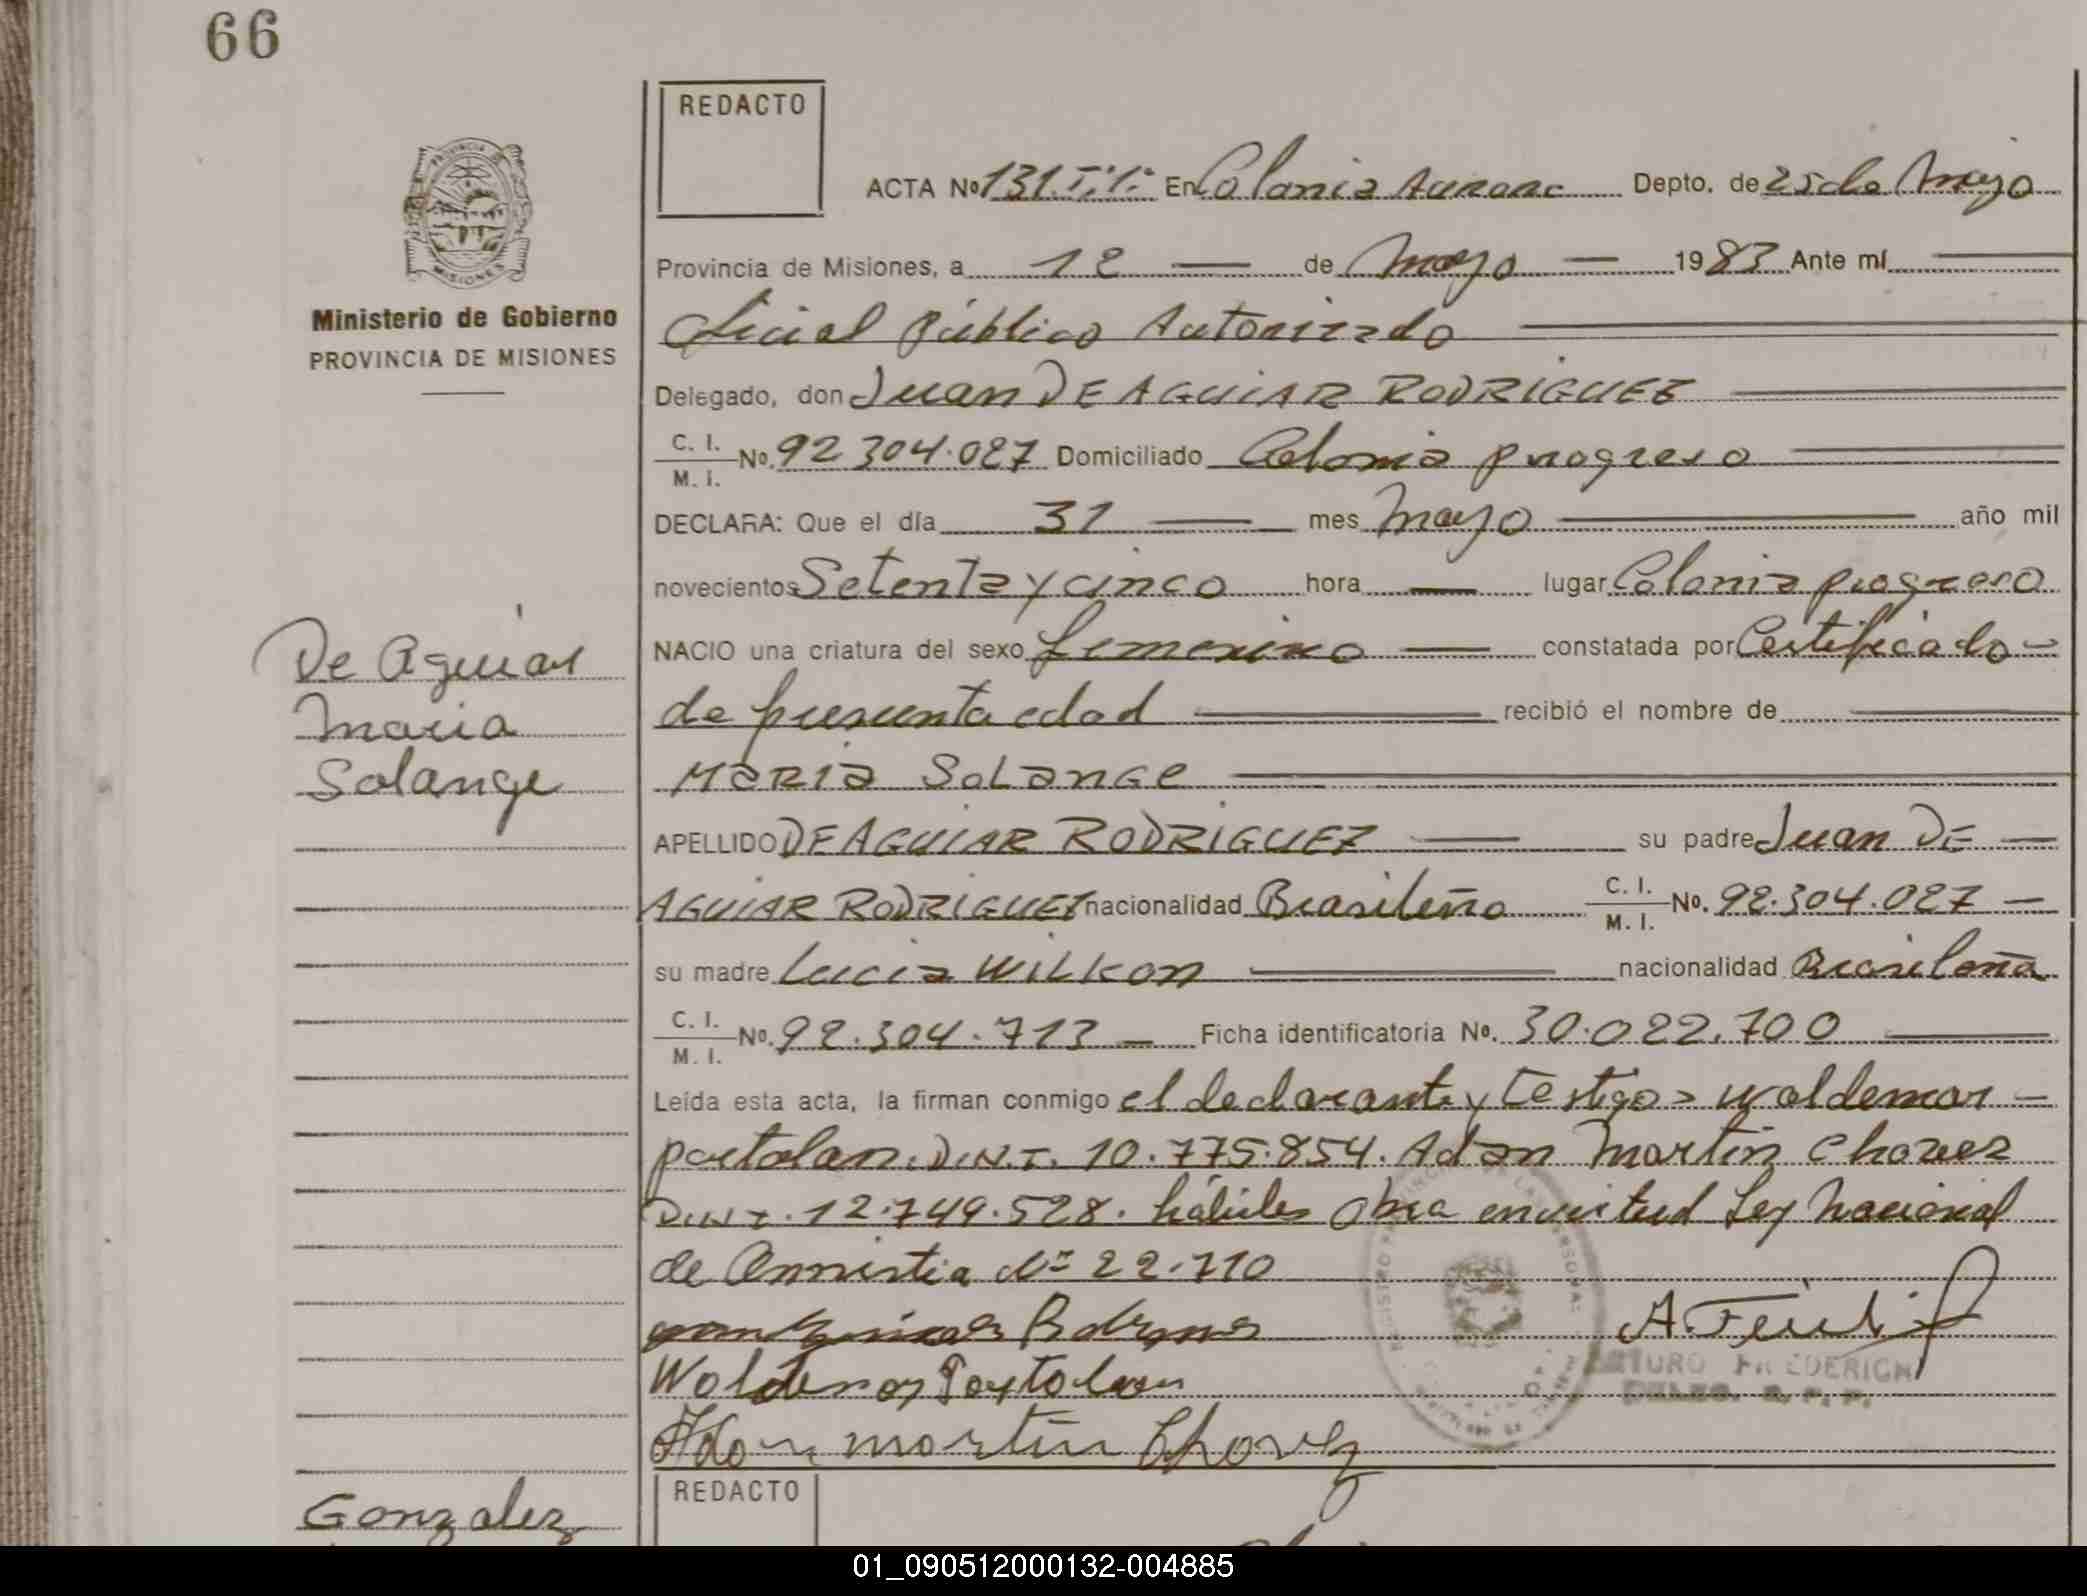 66
REDACTO
ACTA Nº 131.T:1: En Colonia Aurora Depto. de 25 de Mayo
Provincia de Misiones, a 12 de Mayo 1983 Ante mí
Oficial Público Autorizado
Ministerio de Gobierno
PROVINCIA DE MISIONES
Delegado, don Juan DE AGUIAR RODRIGUEZ
C. I.
M. I. Nº. 92 304.027 Domiciliado Colonia progreso
DECLARA: Que el día 31 mes Mayo año mil
novecientos Setenta y cinco hora lugar Colonia progreso
De Aguiar
Maria
Solange
NACIO una criatura del sexo femenino constatada por Certificado
de presunta edad recibió el nombre de
MARIA SOLANGE
APELLIDO DE AGUIAR RODRIGUEZ su padre Juan DE
AGUIAR RODRIGUEZ nacionalidad Brasileño C. I. M. I. Nº. 92.304.027
su madre Lucia WILKON nacionalidad Brasileña
C. I.
M. I. Nº. 92.304.713 Ficha identificatoria Nº. 30.022.700
Leída esta acta, la firman conmigo el declarante y testigos Waldemar
portolan. D.N.I. 10.775.854. Adan Martin Chavez
D.N.I. 12.749.528. hábiles obra en virtud Ley Nacional
de Amnistia Nº 22.710
Waldemar Portolan
Adan martin Chavez
ARTURO FREDERICH
DELEG. R. P. P.
REDACTO
Gonzalez
01_090512000132-004885